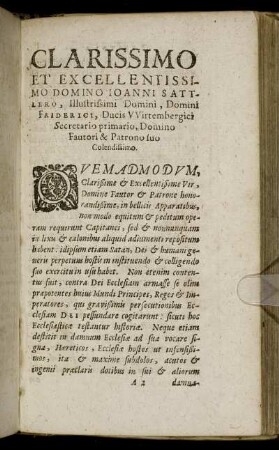 CLARISSIMO
ET EXCELLENTISSI-
MO DOMINO IOANNI SATT-
LERO, Illustrissimi Domini, Domini
FRIDERICI, Ducis VVirtembergici
Secretario primario, Domino
Fautori & Patrono suo
Colendissimo.
QVEMADMODVM,
Clarissime & Excellentissime Vir,
Domine Fautor & Patrone hono-
randissime, in bellicis Apparatibus,
non modo equitum & peditum ope-
ram requirunt Capitanei, sed & nonnunquam
in lixis & calonibus aliquid adiumenti repositum
habent: idipsum etiam Satan, Dei & humani ge-
neris perpetuus hostis in instituendo & colligendo
suo exercitu in usu habet. Non etenim conten-
tus fuit, contra Dei Ecclesiam armasse se olim
præpotentes huius Mundi Principes, Reges & Im-
peratores, qui gravissimis persecutionibus Ec-
clesiam DEI pessundare cogitarunt: sicuti hoc
Ecclesiasticæ testantur historiæ. Neque etiam
destitit in damnum Ecclesiæ ad sua vocare si-
gna, Hæreticos, Ecclesiæ hostes ut infensissi-
mos, ita & maxime subdolos, acutos &
ingenii præclaris dotibus in sui & aliorum
A 2 damna-